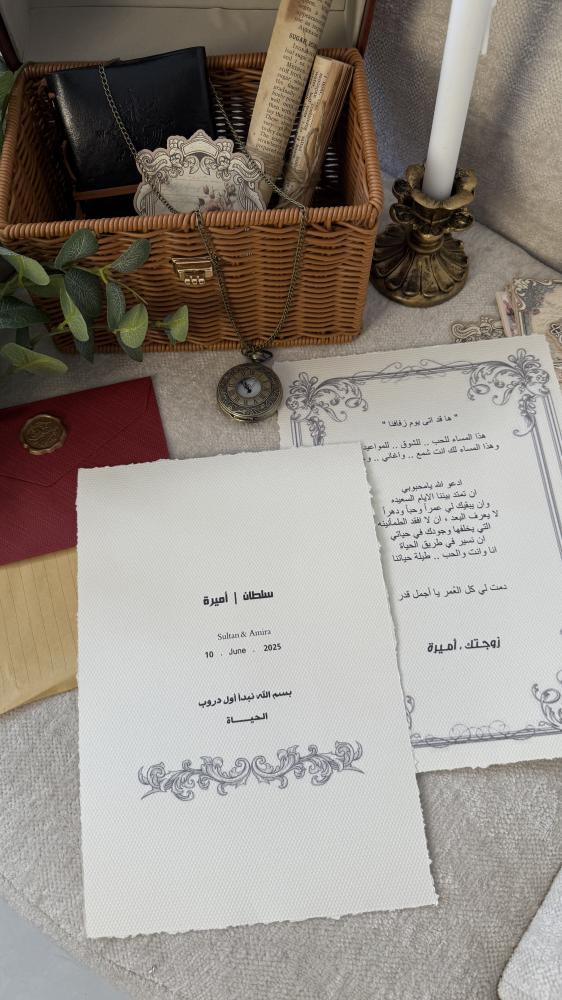 SUGAR
سلطان | أميرة
Sultan & Amira
10 . June . 2025
بسم الله نبدأ أول دروب
الحيـــاة
" ها قد اتى يوم زفافنا "
هذا المساء للحب .. للشوق .. للمواعيد
وهذا المساء لك انت شمع .. واغاني ..
ادعو الله يامحبوبي
ان تمتد بيننا الايام السعيده
وان يبقيك لي عمراً وحباً ودهراً
لا يعرف البعد ، ان لا افقد الطمأنينه
التي يخلفها وجودك في حياتي
ان نسير في طريق الحياة
انا وانت والحب .. طيلة حياتنا
دمت لي كل العُمر يا أجمل قدر
زوجتك ، أميرة